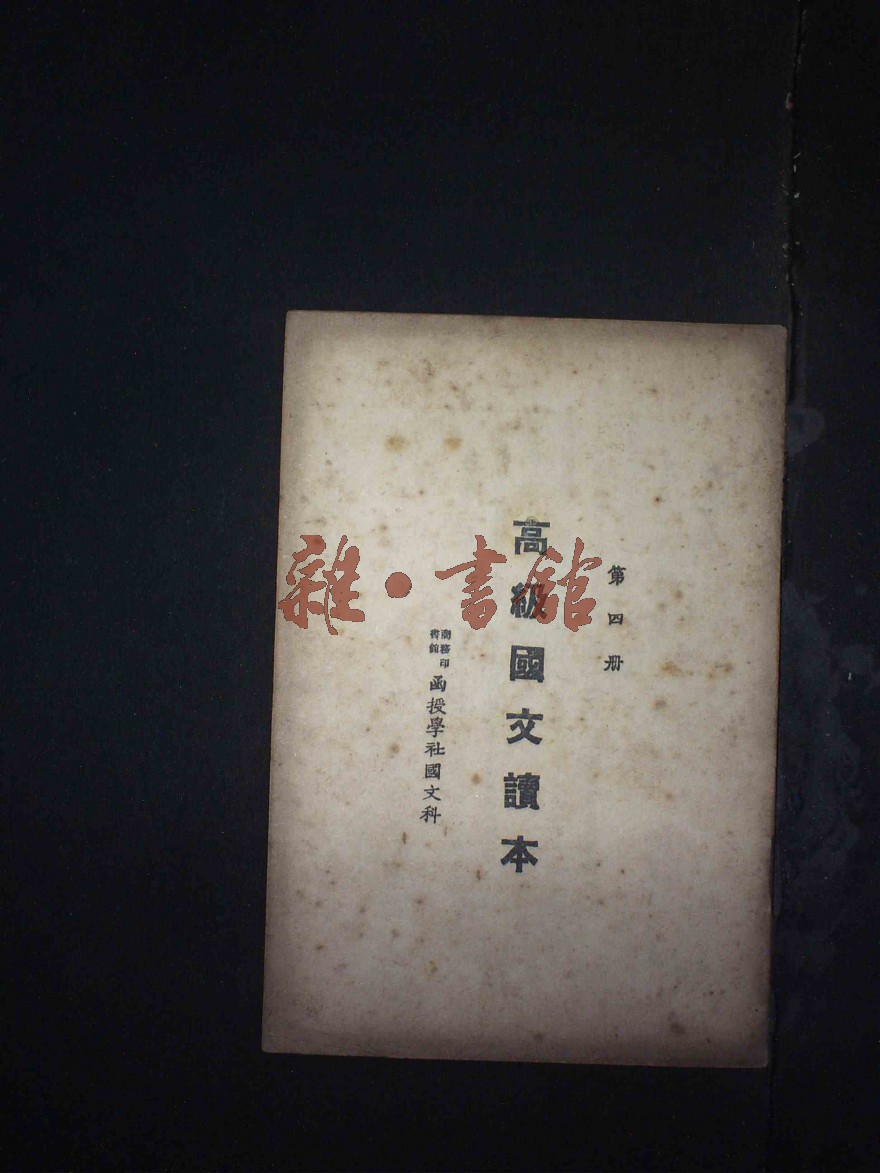 第四册
高級國文讀本
商務印書館函授學社國文科
雜·書館